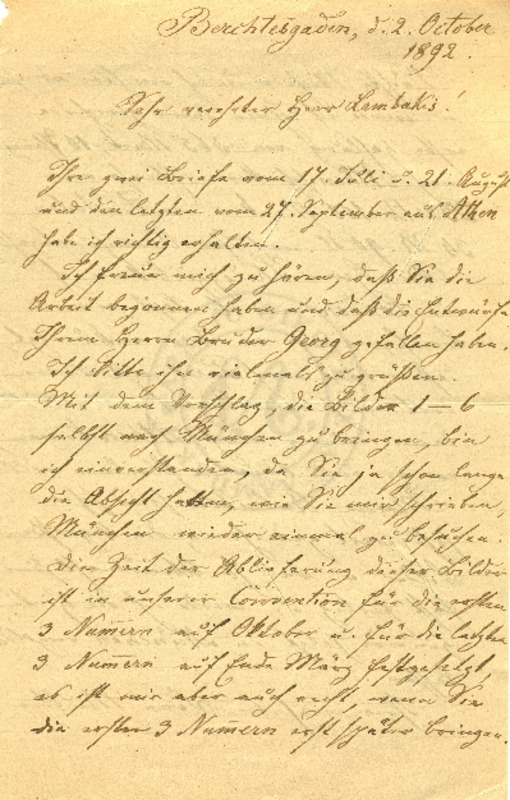 Berchtesgaden, d. 2. October
1892.
Sehr verehrter Herr Lambakis!
Ihre zwei Briefe vom 17. Juli u. 21. August
und den letzten vom 27. September aus Athen
habe ich richtig erhalten.
Ich freue mich zu hören, daß Sie die
Arbeit begonnen haben und daß die Entwürfe
Ihrem Herrn Bruder Georg gefallen haben.
Ich bitte ihn vielmals zu grüßen.
Mit dem Vorschlag, die Bilder 1 – 6
selbst nach München zu bringen, bin
ich einverstanden, da Sie ja schon lange
die Absicht hatten, wie Sie mir schrieben,
München wieder einmal zu besuchen.
Die Zeit der Ablieferung dieser Bilder
ist in unserer Convention für die ersten
3 Num̄ern auf Oktober u. für die letzten
3 Num̄ern auf Ende März festgesetzt,
es ist mir aber auch recht, wenn Sie
die ersten 3 Num̄ern erst später bringen.